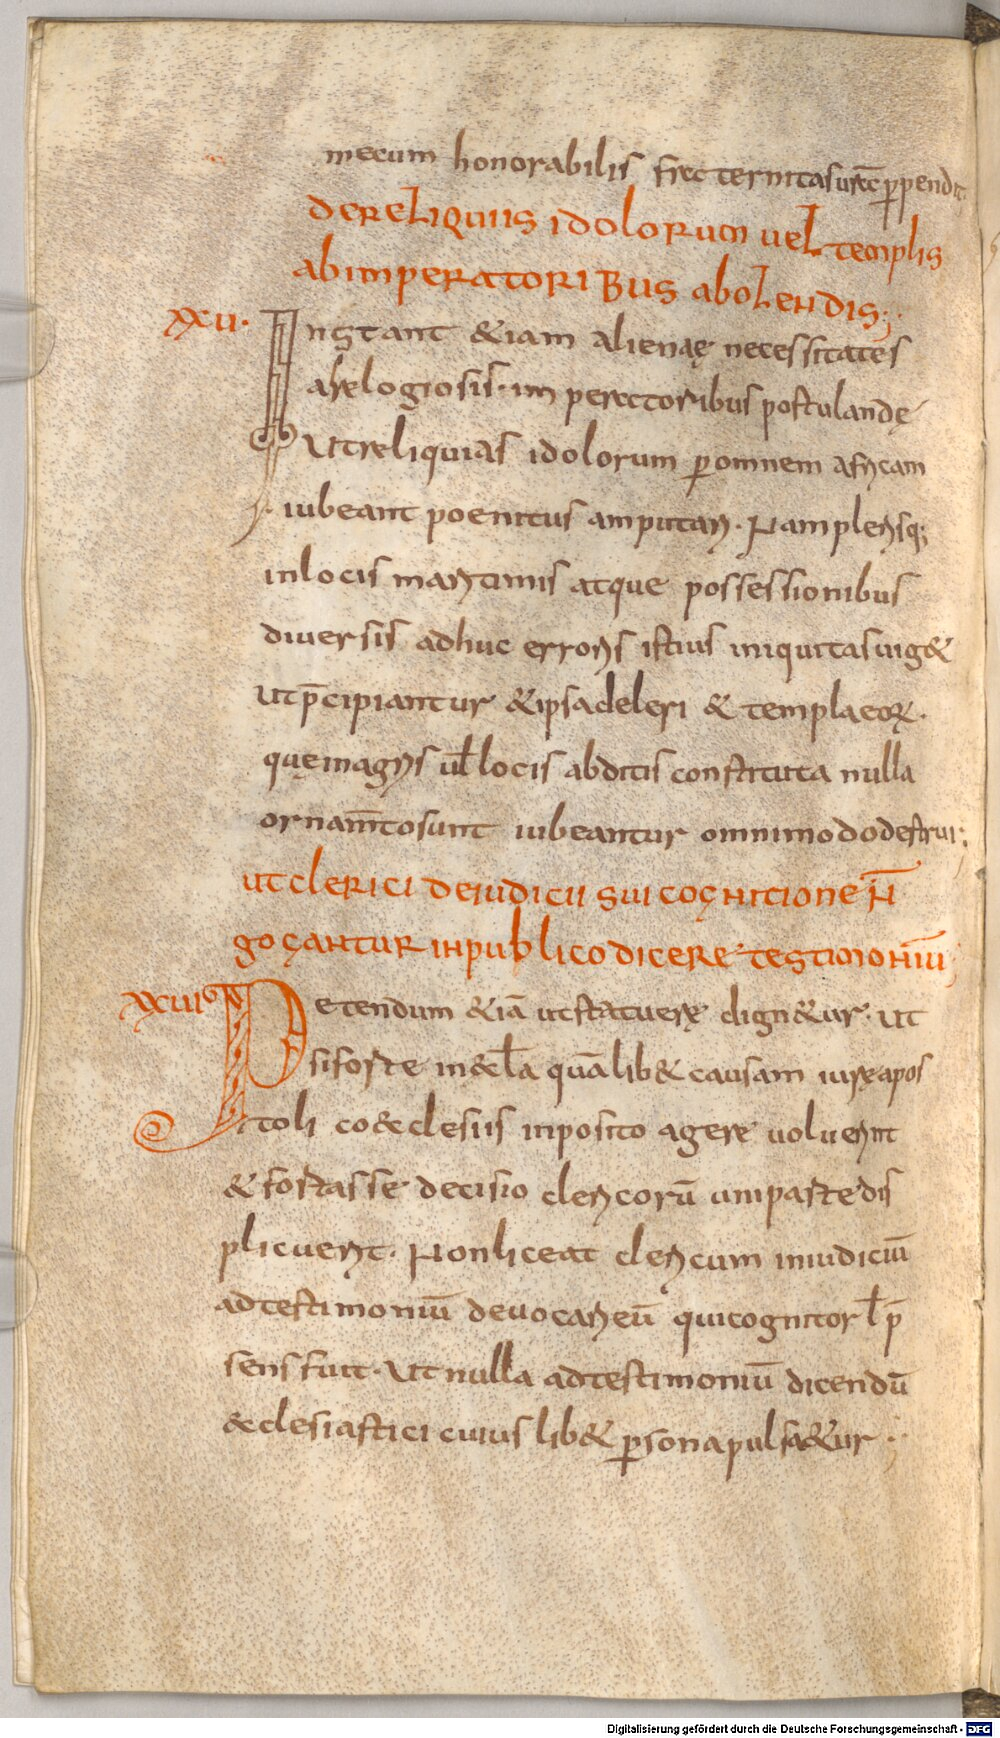 mecum honorabilis fraternitas urā p̱pendit.
de reliquiis idolorum uel templis
ab imperatoribus abolendis;
XXII. Instant &iam alienę necessitates
a relogiosis imperatoribus postulandę
Ut reliquias idolorum p̱ omnem africam
iubeant poenitus amputari. Nam plerisq;
in locis maritimis atque possessionibus
diuersis adhuc erroris istius iniquitas uig&
ut p̄cipiantur & ipsa deleri & templa eoꝝ.
quę in agris uł locis abditis constituta nulla
ornam̄to sunt iubeantur omnimodo destrui;
ut clerici de iudicii sui cognitione n̄
gogantur in publico dicere testimoniū;
XXIII Petendum &iā ut statuere dign&ur. Ut
si forte in æcl̄a quālib& causam iure apos
toli co æclesiis inposito agere uoluerint
& fortasse decisio clericorū uni parte dis
plicuerit. Non liceat clericum in iudiciū
ad testimoniū deuocari eū qui cognitor ł p̄
sens fuit. Ut nulla ad testimoniū dicendū
æclesiastici cuius lib& p̱sona pulsa&ur
Digitalisierung gefördert durch die Deutsche Forschungsgemeinschaft - DFG